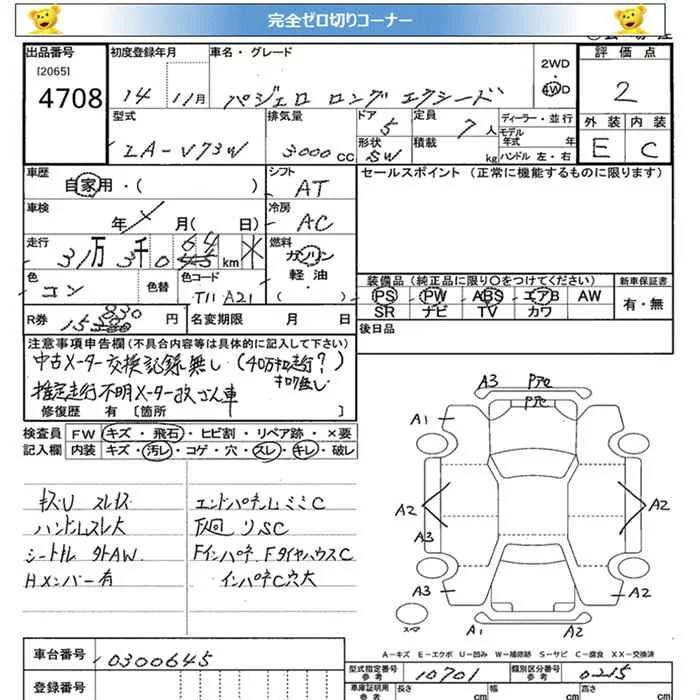 完全ゼロ切りコーナー
出品番号
[2065]
4708
初度登録年月
14 11月
車名・グレード
パジェロ ロング エクシード
2WD
・
4WD
評価点
2
外装 内装
E C
型式
LA-V73W
排気量
3000cc
ドア
5
形状
SW
定員
7人
積載
kg
ディーラー・並行
モデル
年式 年
ハンドル 左・右
車歴
自家用・( )
シフト
AT
車検
年 月( 日)
冷房
AC
走行
31万3千0 64 km
燃料
ガソリン
軽油・
( )
色
コン
色替
色コード
T11 A21
R券
830
円
名変期限 月 日
セールスポイント (正常に機能するものに限ります)
装備品(純正品に限り○をつけてください)
PS PW ABS エアB AW
SR ナビ TV カワ
新車保証書
有・無
後日品
注意事項申告欄(不具合内容等は具体的に記入して下さい)
中古メーター交換記録無し (40万キロ走行?)
推定走行不明メーター改ざん車
修復歴 有 [箇所 ]
検査員
記入欄
FW キズ・飛石・ヒビ割・リペア跡・×要
内装 キズ・汚レ・コゲ・穴・スレ・キレ・破レ
キズU スレキズ
ハンドルスレ大
シートドル 外AW
Hメンバー有
エンドパネルミミC
下廻りSC
Fインパネ、FタイヤハウスC
インパネC穴大
A3
A1
A2
A3
A3
A2
A2
A1
A2
スペア
A-キズ E-エクボ U-凹み W-補修跡 S-サビ C-腐食 XX-交換済
車台番号
0300645
登録番号
型式指定番号
参考
10701
類別区分番号
参考
0215
車庫証明用
参考
長さ cm
幅 cm
高さ cm